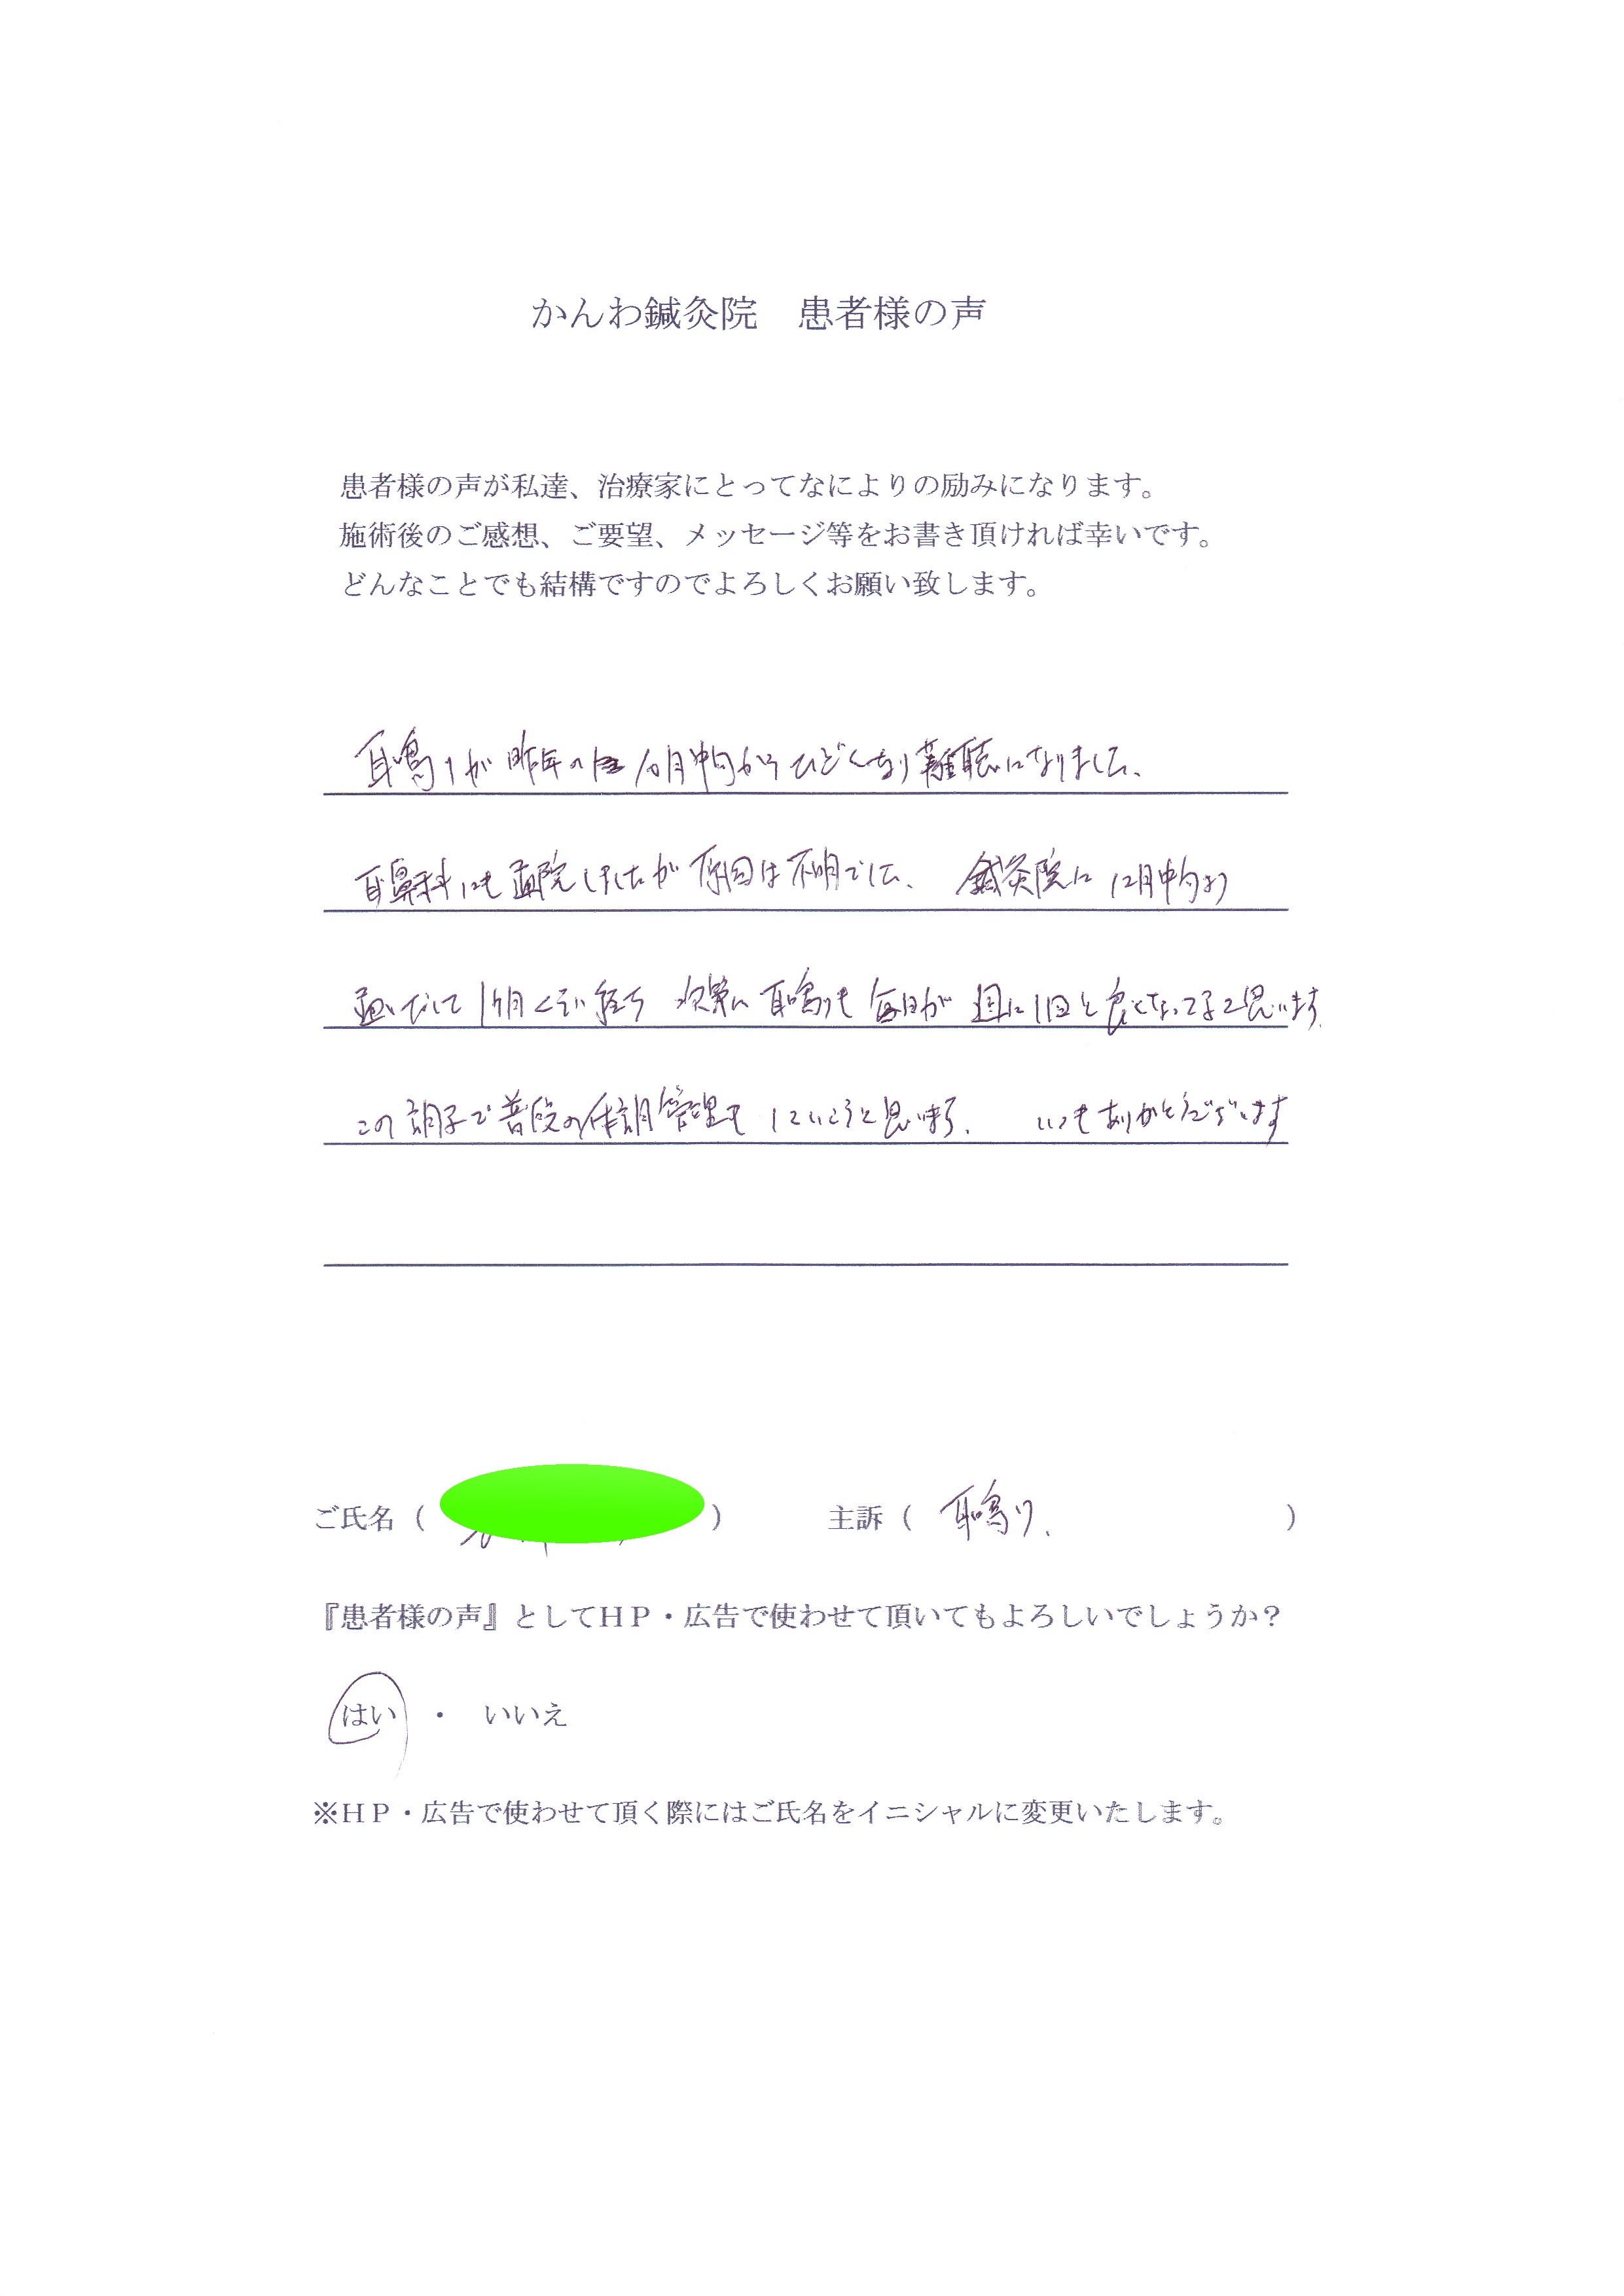 かんわ鍼灸院　患者様の声
患者様の声が私達、治療家にとってなによりの励みになります。
施術後のご感想、ご要望、メッセージ等をお書き頂ければ幸いです。
どんなことでも結構ですのでよろしくお願い致します。
耳鳴りが昨年の 10月中旬からひどくなり難聴になりました、
耳鼻科にも通院しましたが原因は不明でした、　鍼灸院に 12月中旬より
通いだして 1ヶ月くらい経ち 次第に 耳鳴りも 毎日が 週に1回と良くなってると思います、
この調子で普段の体調管理も していこうと思います、　いつもありがとうございます
ご氏名（　　）　主訴（ 耳鳴り、 ）
『患者様の声』としてＨＰ・広告で使わせて頂いてもよろしいでしょうか？
はい ・ いいえ
※ＨＰ・広告で使わせて頂く際にはご氏名をイニシャルに変更いたします。